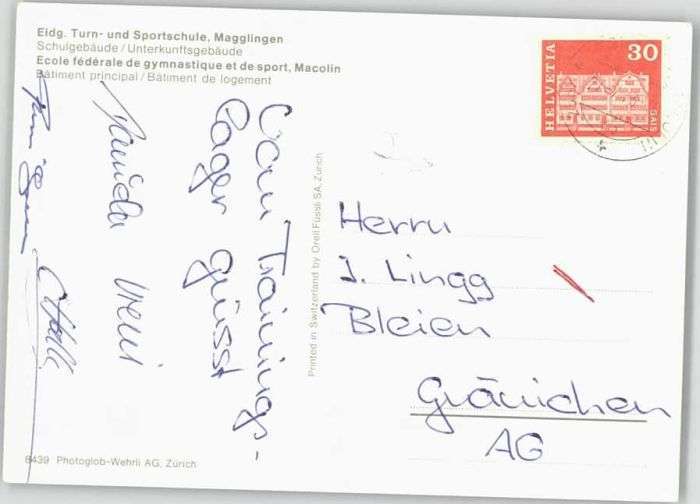 Eidg. Turn- und Sportschule, Magglingen
Schulgebäude / Unterkunftsgebäude
Ecole fédérale de gymnastique et de sport, Macolin
Bâtiment principal / Bâtiment de logement
HELVETIA
30
GAIS
Vom Trainings-
lager grüsst
Vreni
Printed in Switzerland by Orell Füssli SA, Zürich
Herrn
J. Lingg
Bleien
Gränichen
AG
8439 Photoglob-Wehrli AG, Zürich